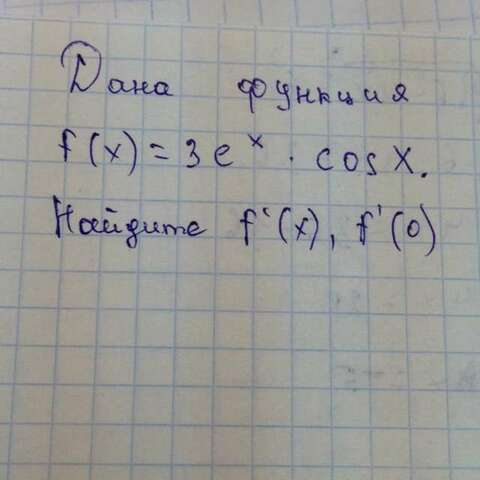 Дана функция
f(x) = 3e^x · cosx.
Найдите f'(x), f'(0)